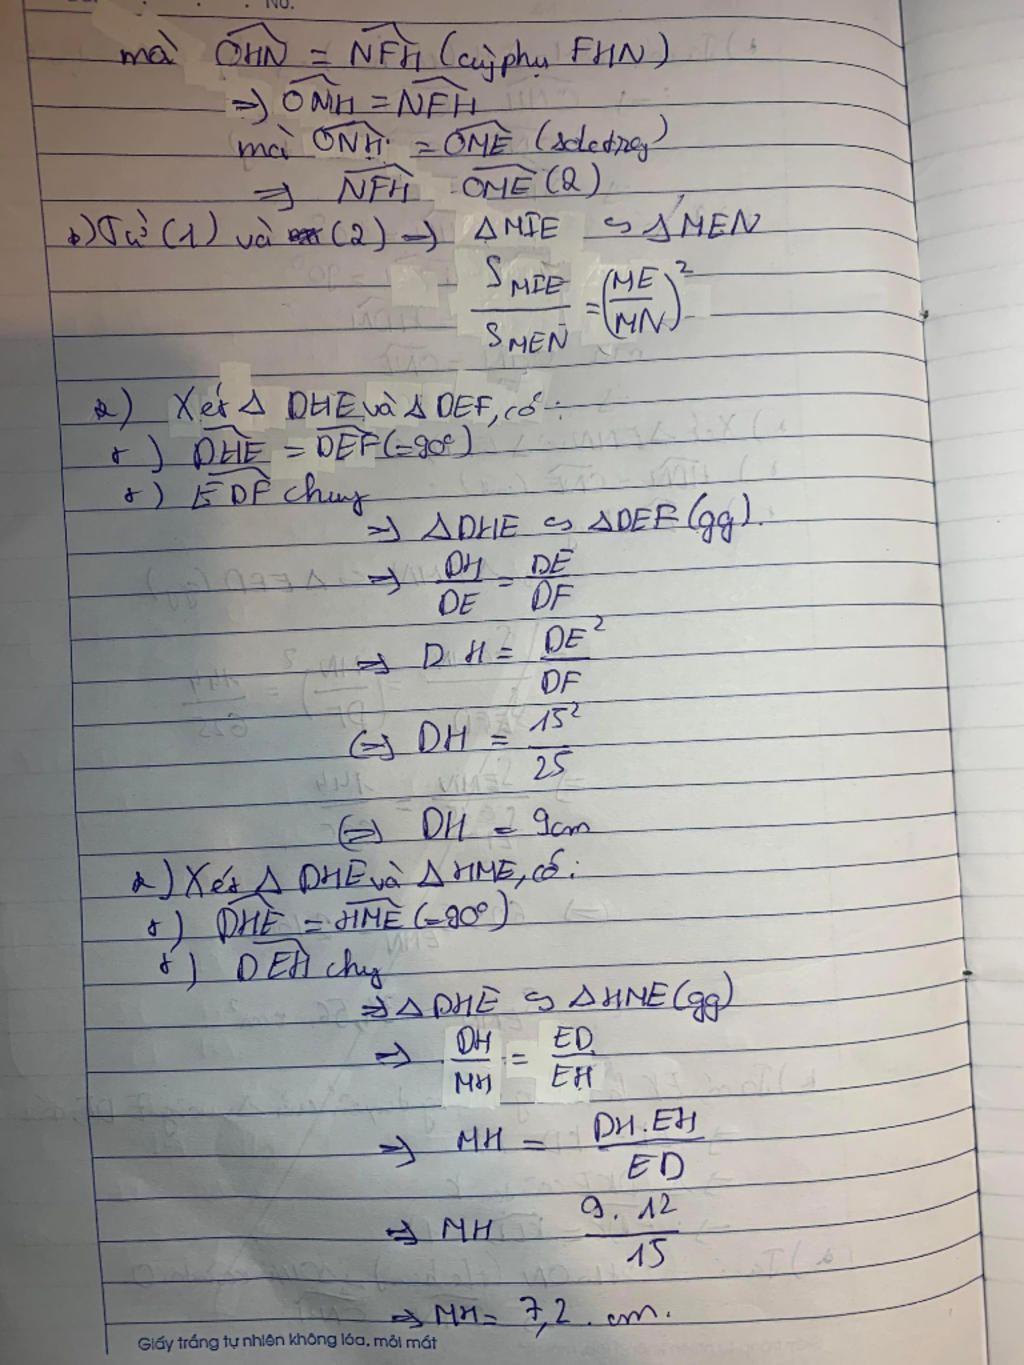 No.
mà OHN = NFH (cùg phụ FHN)
=> ONH = NFH
mà ONH = OME (soletrog)
=> NFH OME (2)
b) Từ (1) và (2) => ΔMIE ∽ ΔMEN
S MIE / S MEN = (ME / MN)²
a) Xét Δ DHE và Δ DEF, có:
+) DHE = DEF (=90°)
+) EDF chug
=> ΔDHE ∽ ΔDEF (gg).
=> DH / DE = DE / DF
=> DH = DE² / DF
(=> DH = 15² / 25
(=> DH = 9cm
a) Xét Δ DHE và Δ HME, có:
+) DHE = HME (=90°)
+) DEH chg
=> Δ DHE ∽ Δ HME (gg)
=> DH / MH = ED / EH
=> MH = DH.EH / ED
=> MH 9.12 / 15
=> MH = 7,2 . cm.
Giấy trắng tự nhiên không lóa, mỏi mắt